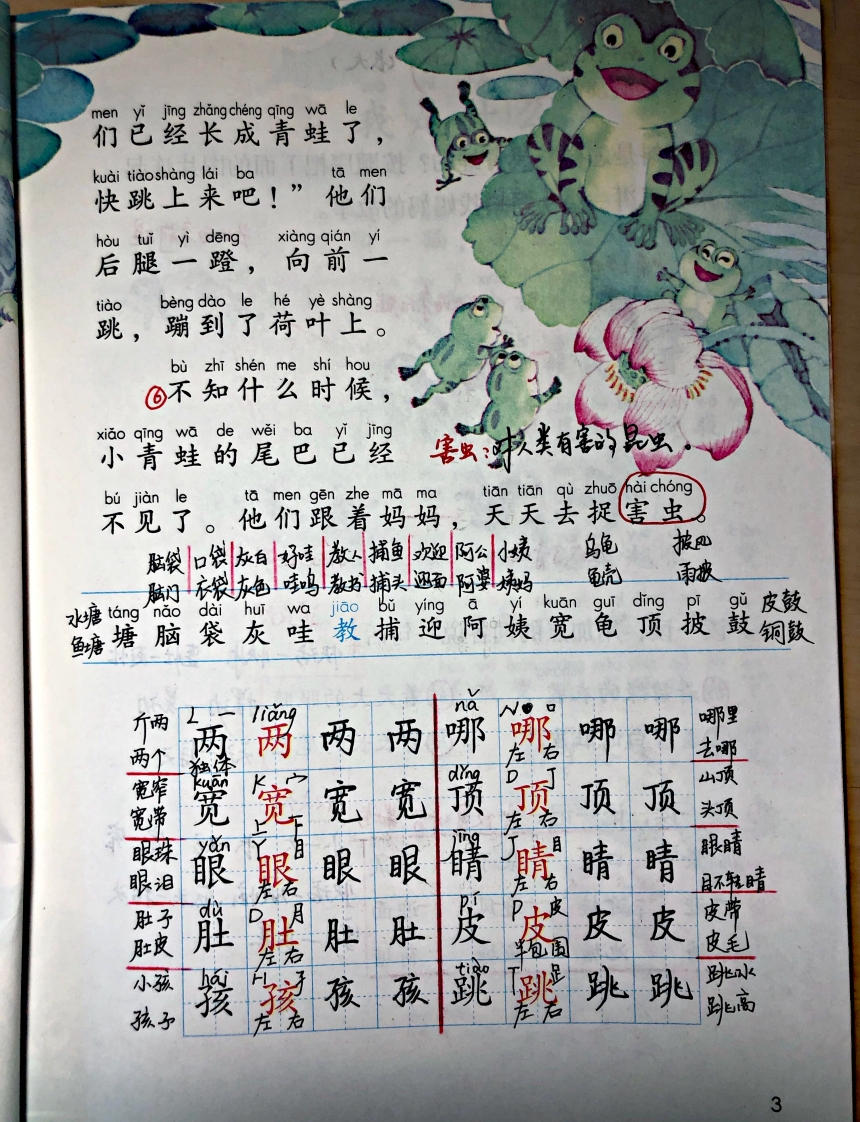 men yǐ jīng zhǎng chéng qīng wā le
们已经长成青蛙了，
kuài tiào shàng lái ba tā men
快跳上来吧！”他们
hòu tuǐ yì dēng xiàng qián yí
后腿一蹬，向前一
tiào bèng dào le hé yè shàng
跳，蹦到了荷叶上。
bù zhī shén me shí hou
⑥不知什么时候，
xiǎo qīng wā de wěi ba yǐ jīng
小青蛙的尾巴已经
害虫：对人类有害的昆虫。
bú jiàn le tā men gēn zhe mā ma tiān tiān qù zhuō hài chóng
不见了。他们跟着妈妈，天天去捉害虫。
脑袋 口袋 灰白 好哇 教人 捕鱼 欢迎 阿公 小姨 乌龟 披风
脑门 衣袋 灰色 哇呜 教书 捕头 迎面 阿婆 姨妈 龟壳 雨披
水塘 táng nǎo dài huī wa jiāo bǔ yíng ā yí kuān guī dǐng pī gǔ 皮鼓
鱼塘 塘脑袋灰哇教捕迎阿姨宽龟顶披鼓 铜鼓
L 一 liǎng nǎ N 口
斤两 两 两 两 两 哪 哪 哪 哪 哪里
两个 独体 左 右 去哪
kuān K 宀 dǐng D 丁
宽窄 宽 宽 宽 宽 顶 顶 顶 顶 山顶
宽带 上 下 左 右 头顶
yǎn Y 目 jīng J 目
眼珠 眼 眼 眼 眼 睛 睛 睛 睛 眼睛
眼泪 左 右 左 右 目不转睛
dù D 月 pí P 皮
肚子 肚 肚 肚 肚 皮 皮 皮 皮 皮带
肚皮 左 右 半包围 皮毛
hái H 子 tiào T 足
小孩 孩 孩 孩 孩 跳 跳 跳 跳 跳水
孩子 左 右 左 右 跳高
3